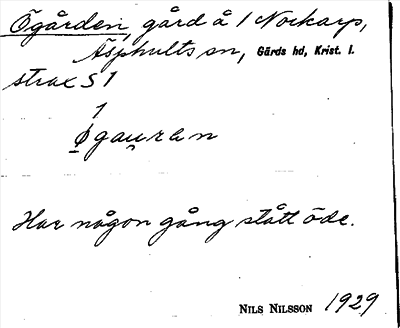 Ögården, gård å 1 Nockarp,
Äsphults sn, Gärds hd, Krist. l.
strax S 1
1
Har någon gång stått öde.
NILS NILSSON 1929